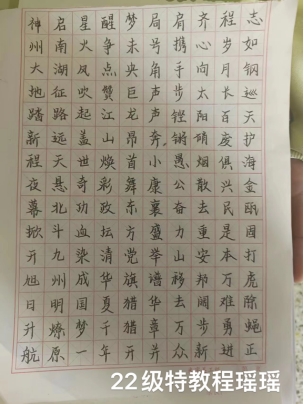 神州大地踏新程夜幕掀开旭日升航
启南湖征路远天悬北斗九州明燎原
星火风吹起盖世奇功血染成国梦一
醒争点赞江山焕彩政坛清华夏千年
梦未央巨龙昂首舞东方党旗猎猎开
局号角声声奔小康襄盛举谱华章并
肩携手步铿锵愚公奋力山移去万众
齐心向太阳硝烟散去重安邦阔步新
程岁月长百废俱兴民是本万难勇进
志如钢巡天护海金瓯固打虎除蝇正
22级特教程瑶瑶